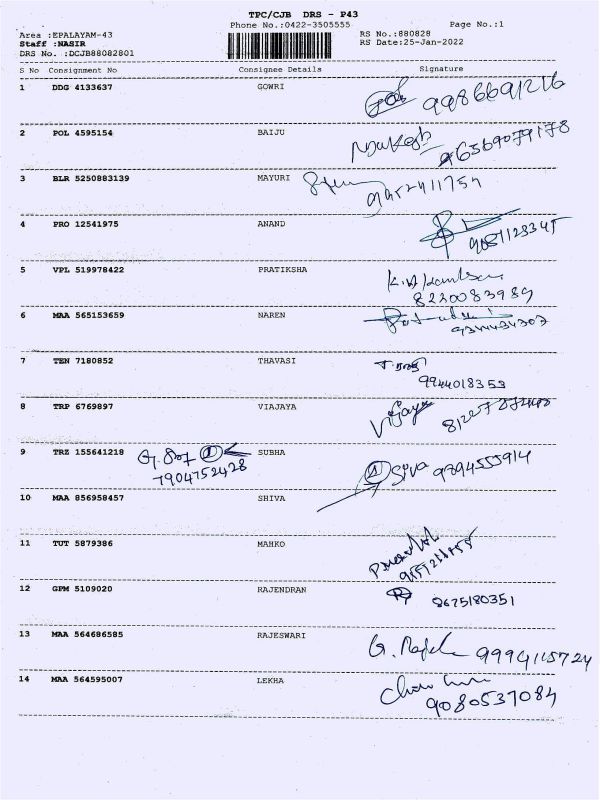 TPC/CJB DRS - P43
Phone No.:0422-3505555 Page No.:1
Area :EPALAYAM-43 RS No.:880828
Staff :NASIR RS Date:25-Jan-2022
DRS No. :DCJB88082801
S No Consignment No Consignee Details Signature
1 DDG 4133637 GOWRI 9986691216
2 POL 4595154 BAIJU 96569079178
3 BLR 5250883139 MAYURI
4 PRO 12541975 ANAND
5 VPL 519978422 PRATIKSHA
8220083989
6 MAA 565153659 NAREN
7 TEN 7180852 THAVASI
9944018353
8 TRP 6769897 VIAJAYA Vijaya
9 TRZ 155641218 SUBHA Siva 9894555914
7904752428
10 MAA 856958457 SHIVA
11 TUT 5879386 MAHKO
12 GPM 5109020 RAJENDRAN 8675180351
13 MAA 564686585 RAJESWARI 9994115724
14 MAA 564595007 LEKHA
9080537084